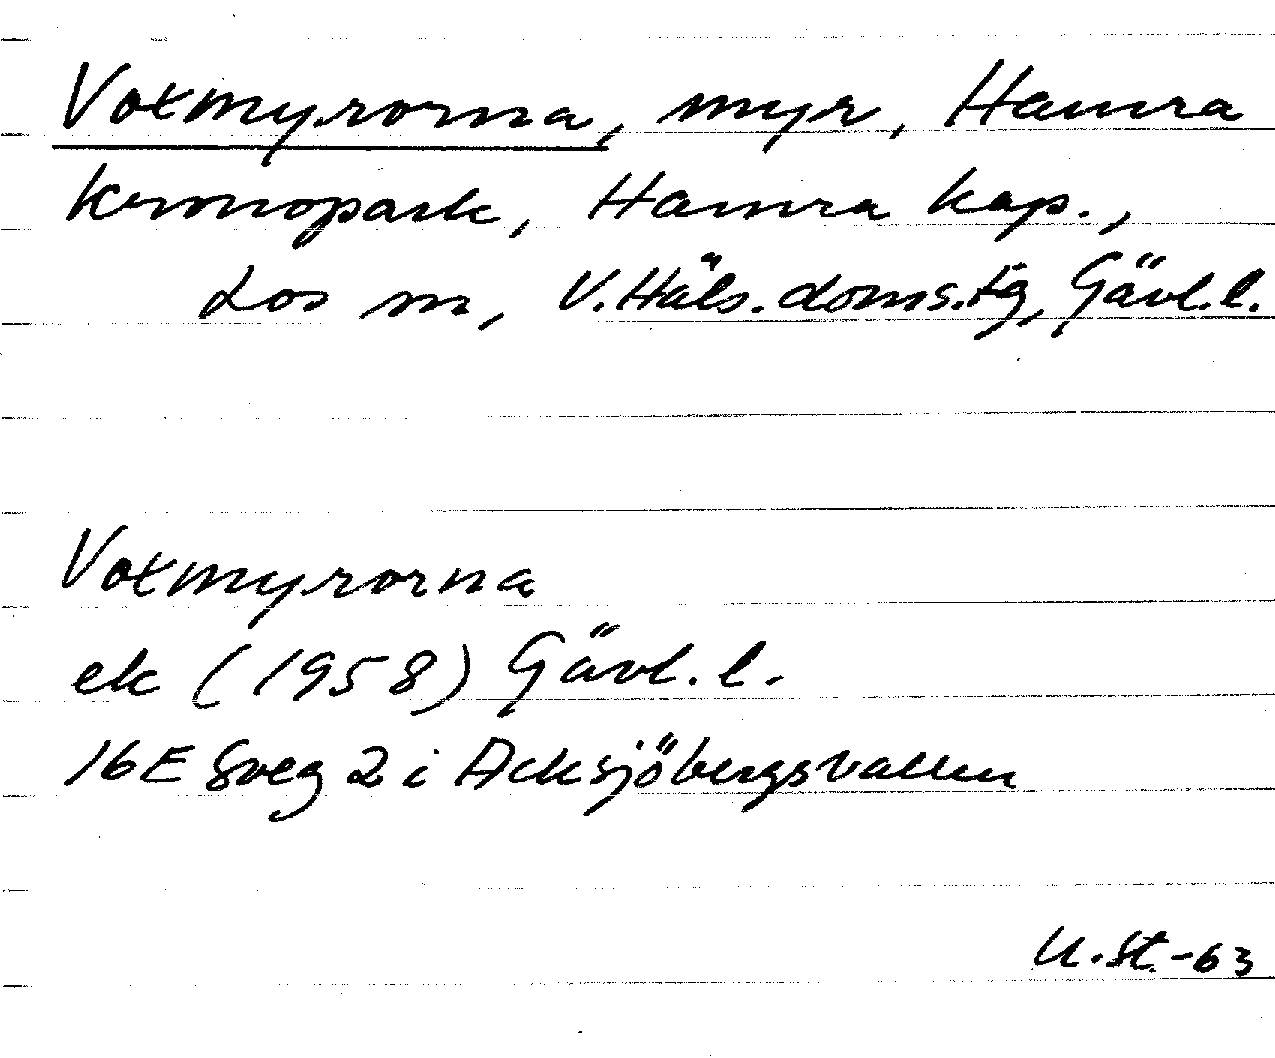 Voxmyrorna, myr, Hamra
kronopark, Hamra kap.,
Los sn, V. Häls. doms.tg, Gävl.l.
Voxmyrorna
ek (1958) Gävl.l.
16E Sveg 2 i Acksjöbergsvallen
U.St.-63